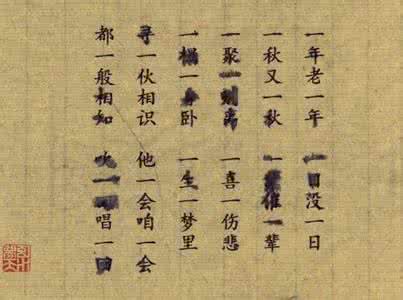 一年老一年 一日没一日
一秋又一秋 一催一辈
一聚一离 一喜一伤悲
一榻一卧 一生一梦里
寻一伙相识 他一会咱一会
都一般相知 吹一唱一回